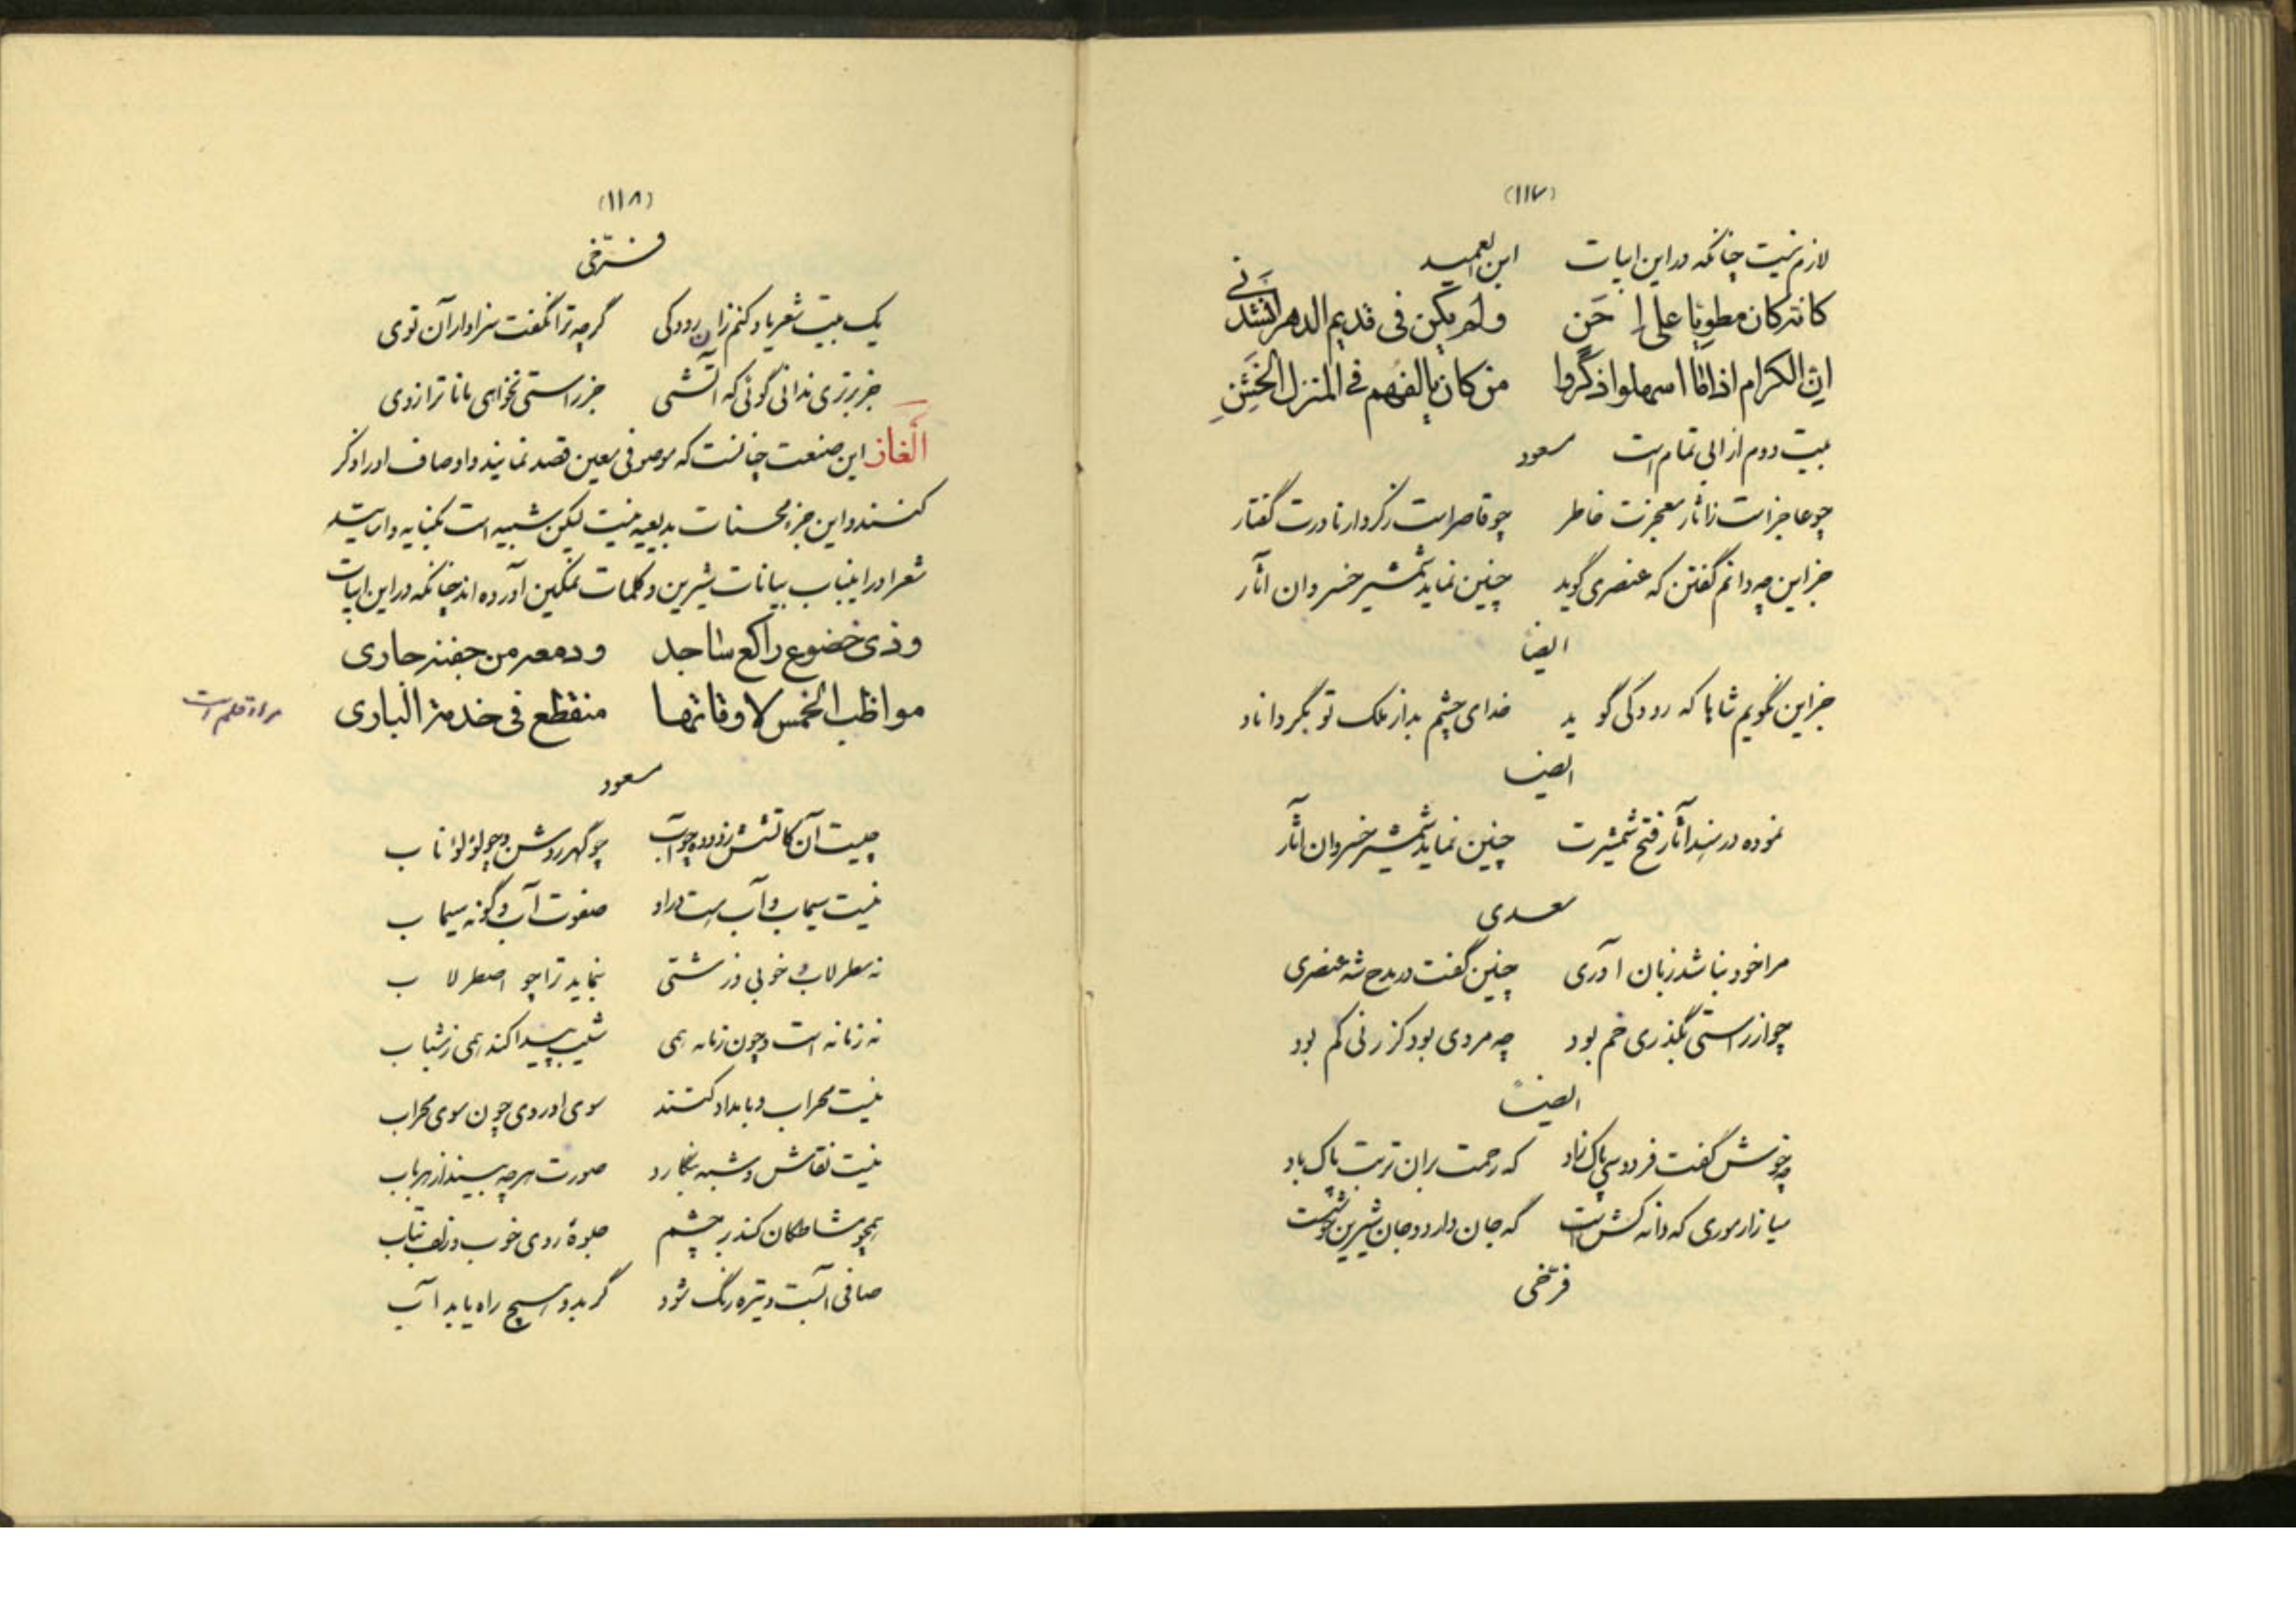 (۱۱۷)
لازم نیست چنانکه در این ابیات ابن العمید
کانه کان مطویا علی احن ولم یکن فی قدیم الدهر انشدنی
ان الکرام اذا ما اسهلوا ذکروا من کان یالفهم فی المنزل الخشن
بیت دوم از ابی تمام است مسعود
چو عاجز است ز اثار معجزت خاطر چو قاصر است ز کردار نادرت گفتار
جز این چه دانم گفتن که عنصری گوید چنین نماید شمشیر خسروان آثار
ایضا
جز این نگویم شاها که رودکی گوید خدای چشم بد از ملک تو بگرداناد
ایضا
نموده در سند آثار فتح شمشیرت چنین نماید شمشیر خسروان اثار
سعدی
مرا خود نباشد زبان آوری چنین گفت در مدح شه عنصری
چو از راستی بگذری خم بود چه مردی بود کز زنی کم بود
ایضاً
چه خوش گفت فردوسی پاک زاد که رحمت بران تربت پاک باد
میازار موری که دانه کش است که جان دارد و جان شیرین خوشست
فرّخی
(۱۱۸)
فرّخی
یک بیت شعر یاد کنم زان رودکی گرچه ترا نگفت سزاوار آن توی
جز برتری ندانی گوئی که آتشی جز راستی نخواهی مانا ترازوی
الغاز این صنعت چنانست که موصوفی معین قصد نمایند و اوصاف او را ذکر
کنند و این جزء محسنات بدیعیه نیست لیکن شبیه است بکنایه و اساتید
شعرا در اینباب بیانات شیرین و کلمات نمکین آورده اند چنانکه در این ابیات
وذی خضوع راکع ساجد ودمعه من جفنه جاری
مواظب الخمس لاوقاتها منقطع فی خدمة الباری
مراد قلم است
مسعود
چیست آن کاتشش زدوده چو آب چو گهر روشن و چو لؤلؤ ناب
نیست سیماب و آب هست در او صفوت آب و گونه سیماب
نه سطرلاب و خوبی و زشتی بنماید ترا چو اصطرلاب
نه زمانه است و چون زمانه همی شیب پیدا کند همی ز شباب
نیست محراب و بامداد کنند سوی او روی چون سوی محراب
نیست نقاش و شبه بنگارد صورت هر چه بیند از هر باب
همچو مشاطگان کند بر چشم جلوهٔ روی خوب و زلف بتاب
صافی آبست و تیره رنگ شود گر بدو هیچ راه یابد آب